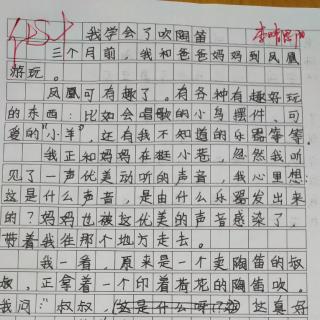 我学会了吹陶笛
三个月前，我和爸爸妈妈到凤凰
游玩。
凤凰可有趣了。有各种有趣好玩
的东西：比如会唱歌的小鸟摆件、可
爱的"小羊"，还有我不知道的乐器等等。
我正和妈妈在逛小巷，忽然我听
见了一声优美动听的声音，我心里想：
这是什么声音，是由什么乐器发出来
的？妈妈也被这优美的声音感染了，
带着我往那个地方走去。
我一看，原来是一个卖陶笛的叔
叔，正拿着一个印着荷花的陶笛吹。
我问："叔叔，这真好